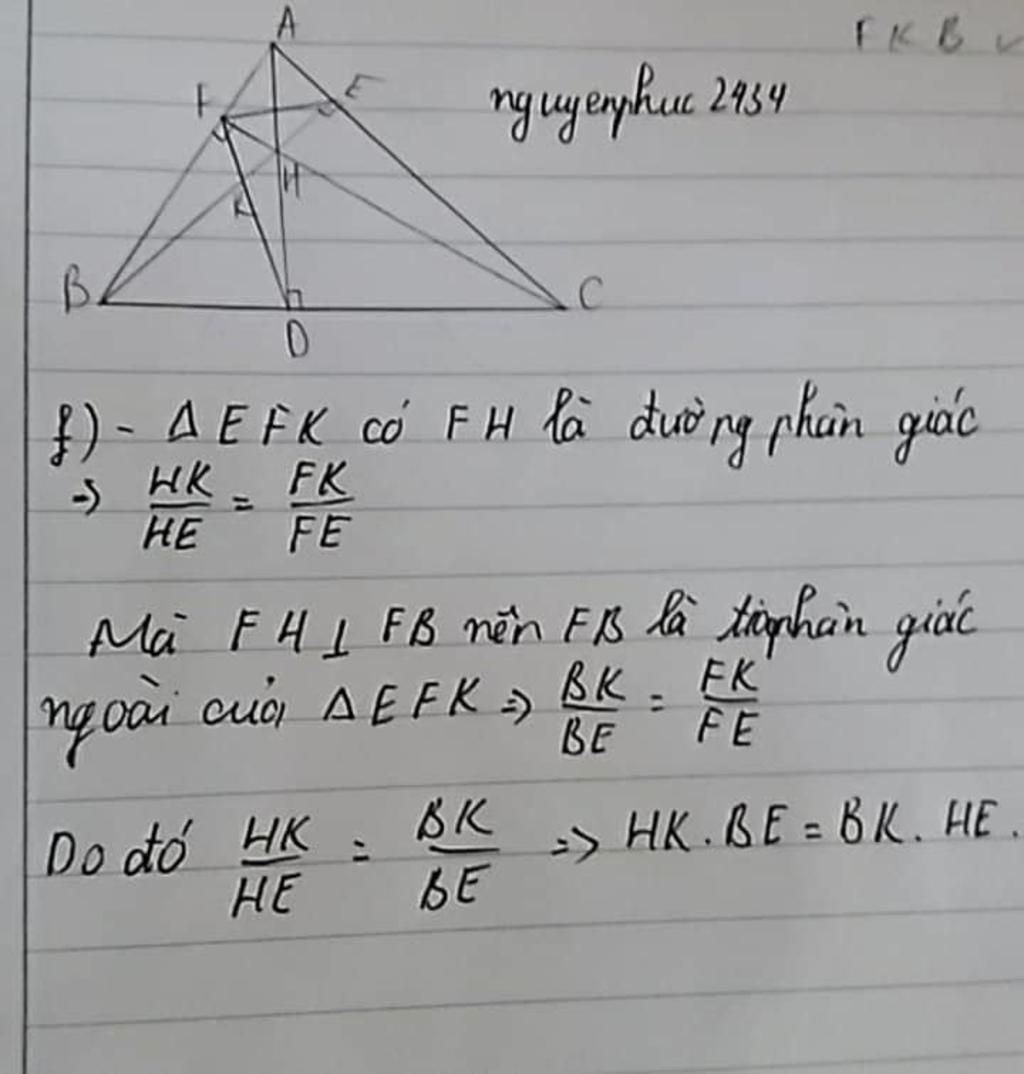 F K B
A
F
E
nguyenphuc 2434
H
K
B
C
D
f) - Δ E F K có F H là đường phân giác
=> HK/HE = FK/FE
Mà F H ⊥ FB nên FB là tia phân giác
ngoài của Δ E F K => BK/BE = FK/FE
Do đó HK/HE = BK/BE => HK . BE = BK . HE .